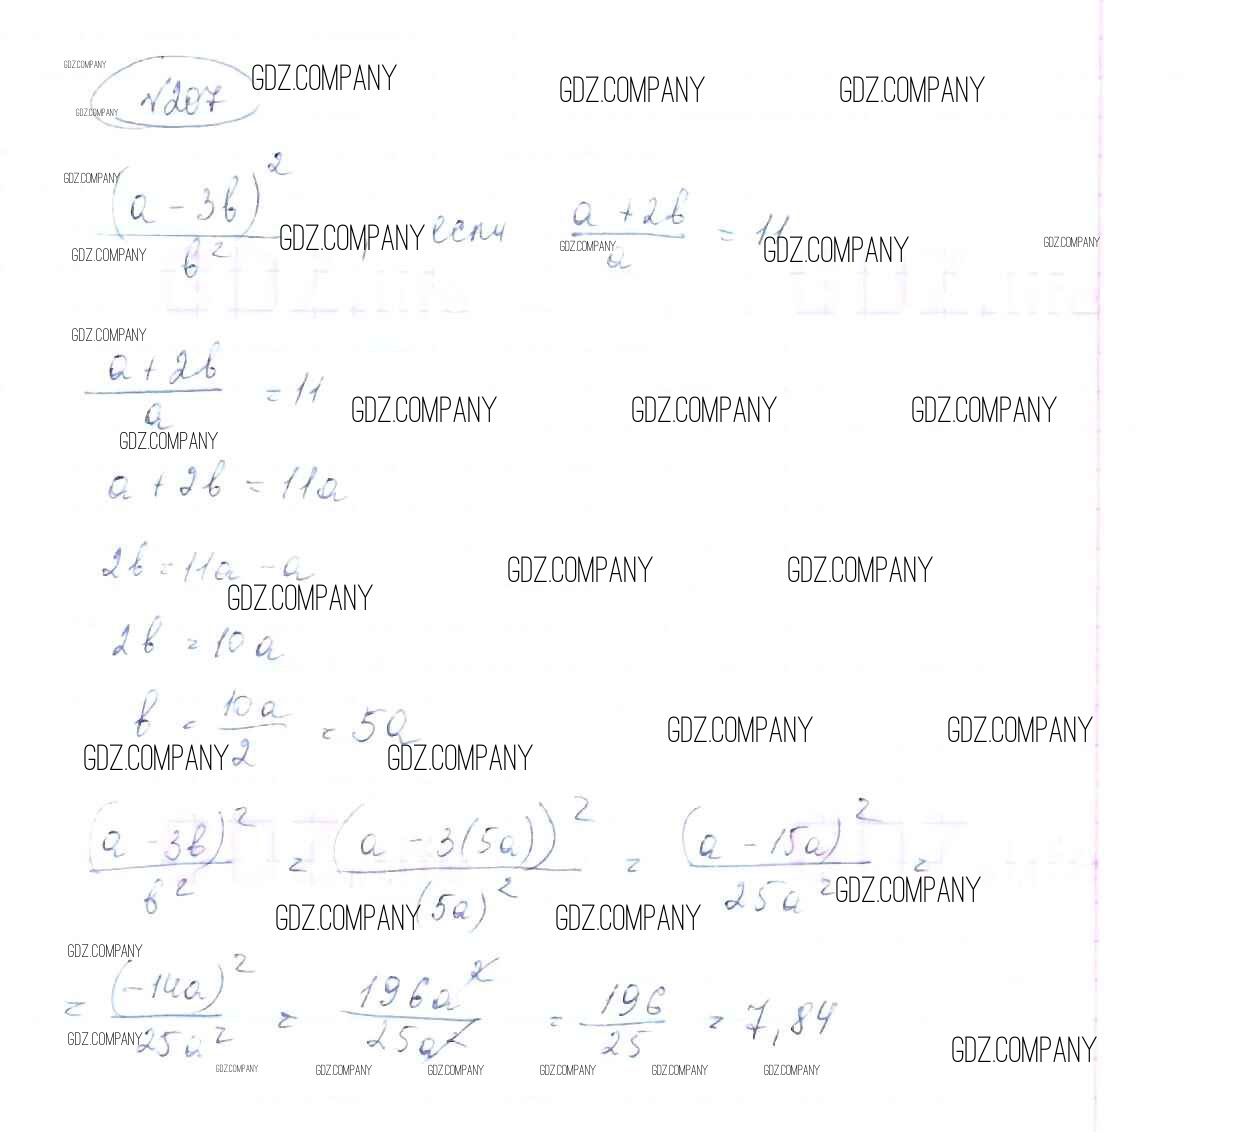 GDZ.COMPANY
№207 GDZ.COMPANY GDZ.COMPANY GDZ.COMPANY
GDZ.COMPANY
GDZ.COMPANY
(a - 3b)² / b² если (a + 2b) / a = 11
GDZ.COMPANY GDZ.COMPANY GDZ.COMPANY GDZ.COMPANY GDZ.COMPANY
GDZ.COMPANY
(a + 2b) / a = 11
GDZ.COMPANY GDZ.COMPANY GDZ.COMPANY
GDZ.COMPANY
a + 2b = 11a
2b = 11a - a
GDZ.COMPANY GDZ.COMPANY
GDZ.COMPANY
2b = 10a
b = 10a / 2 = 5a
GDZ.COMPANY GDZ.COMPANY
GDZ.COMPANY GDZ.COMPANY
(a - 3b)² / b² = (a - 3(5a))² / (5a)² = (a - 15a)² / 25a² =
GDZ.COMPANY
GDZ.COMPANY GDZ.COMPANY
GDZ.COMPANY
= (-14a)² / 25a² = 196a² / 25a² = 196 / 25 = 7,84
GDZ.COMPANY GDZ.COMPANY
GDZ.COMPANY GDZ.COMPANY GDZ.COMPANY GDZ.COMPANY GDZ.COMPANY GDZ.COMPANY